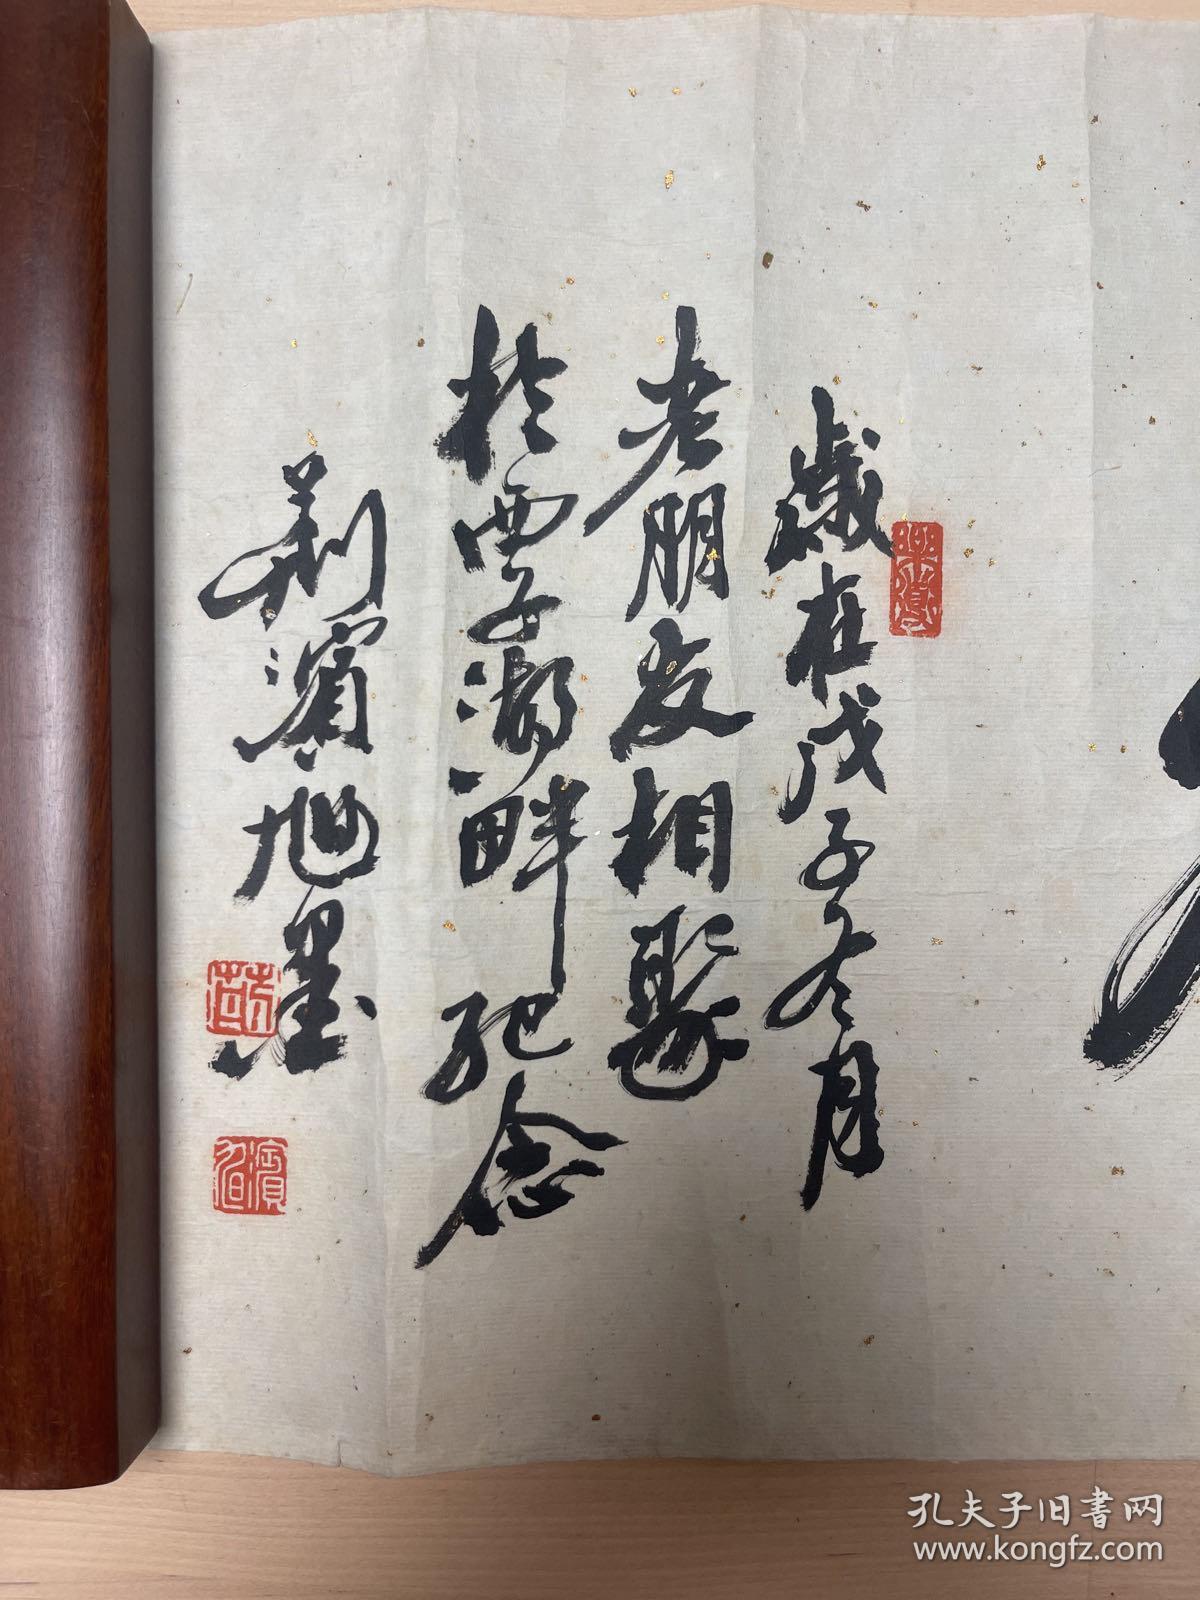 歲在戊子冬月
老朋友相聚
於西子湖畔紀念
荆濱旭墨
孔夫子旧书网
www.kongfz.com